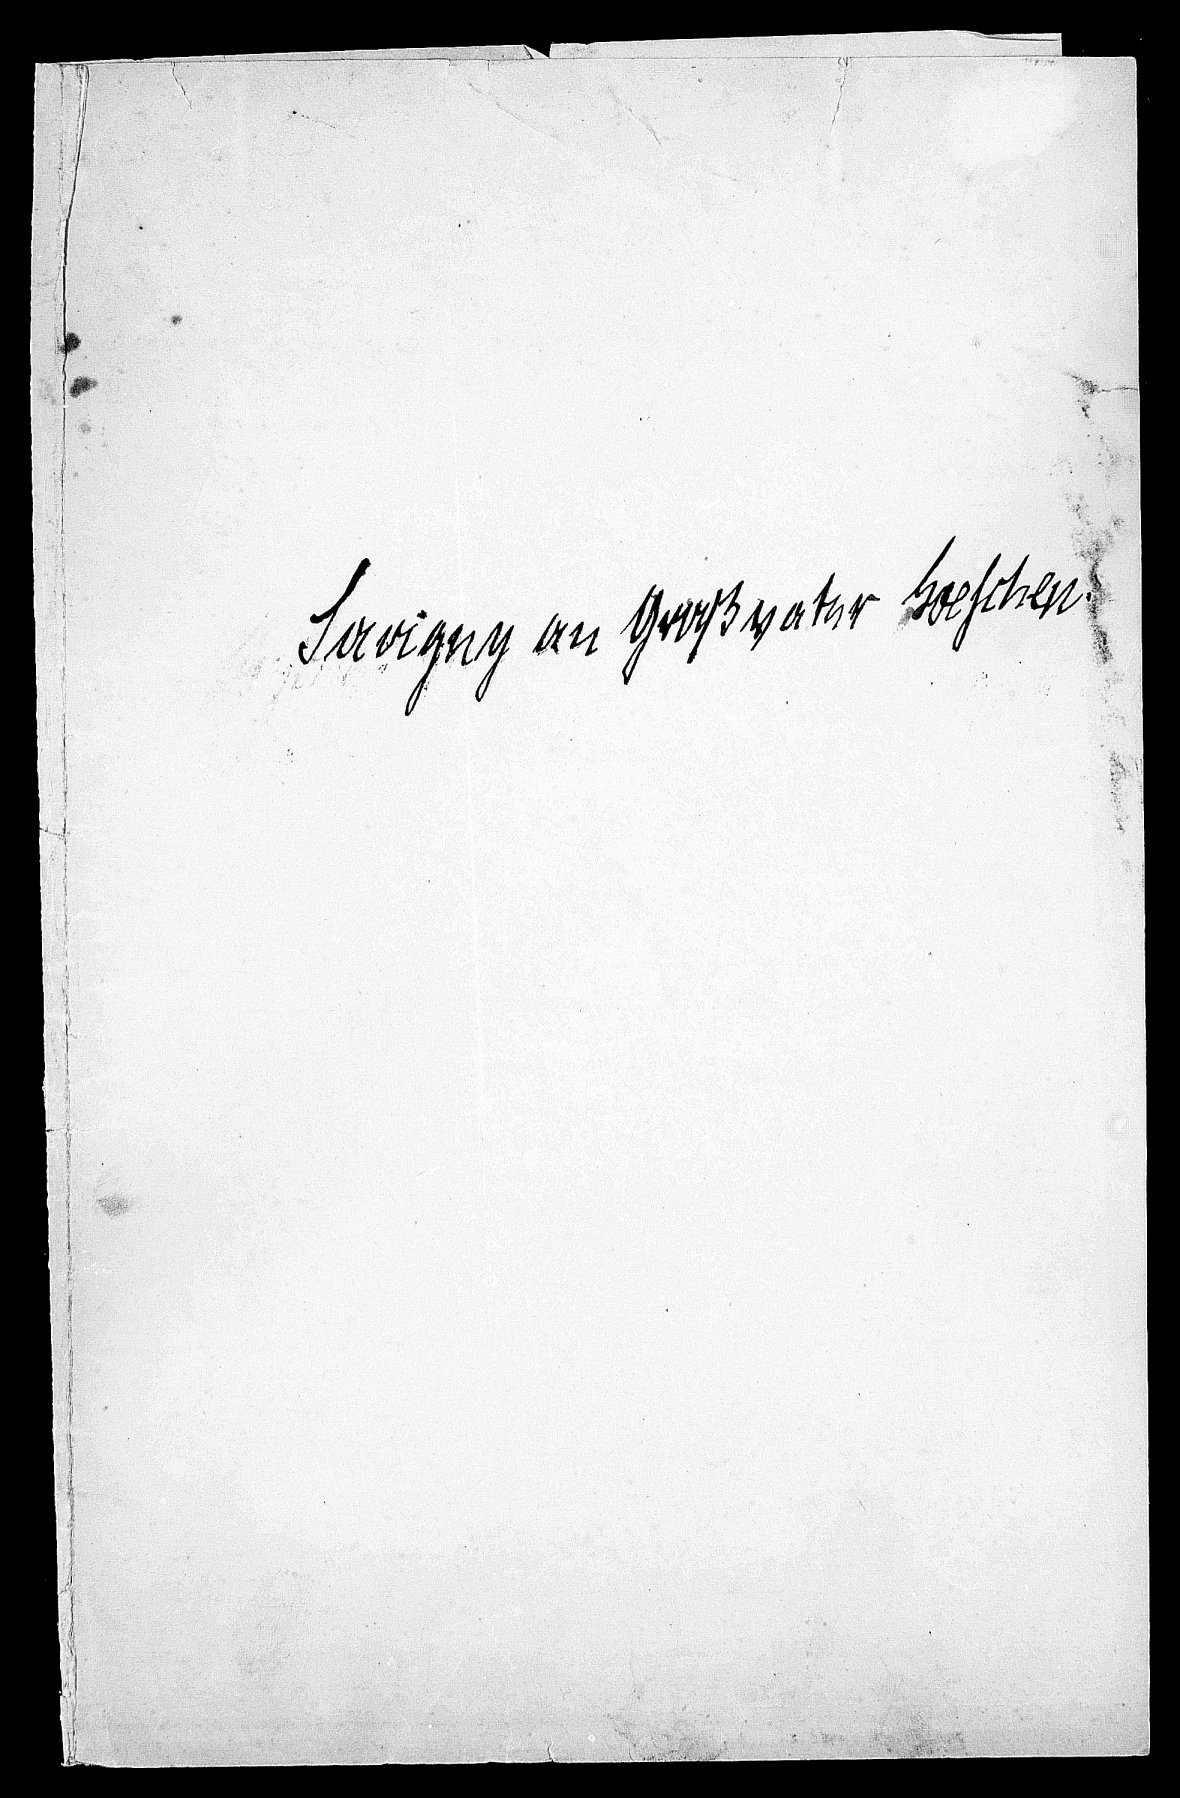 Savigny an Großvater Goeschen.